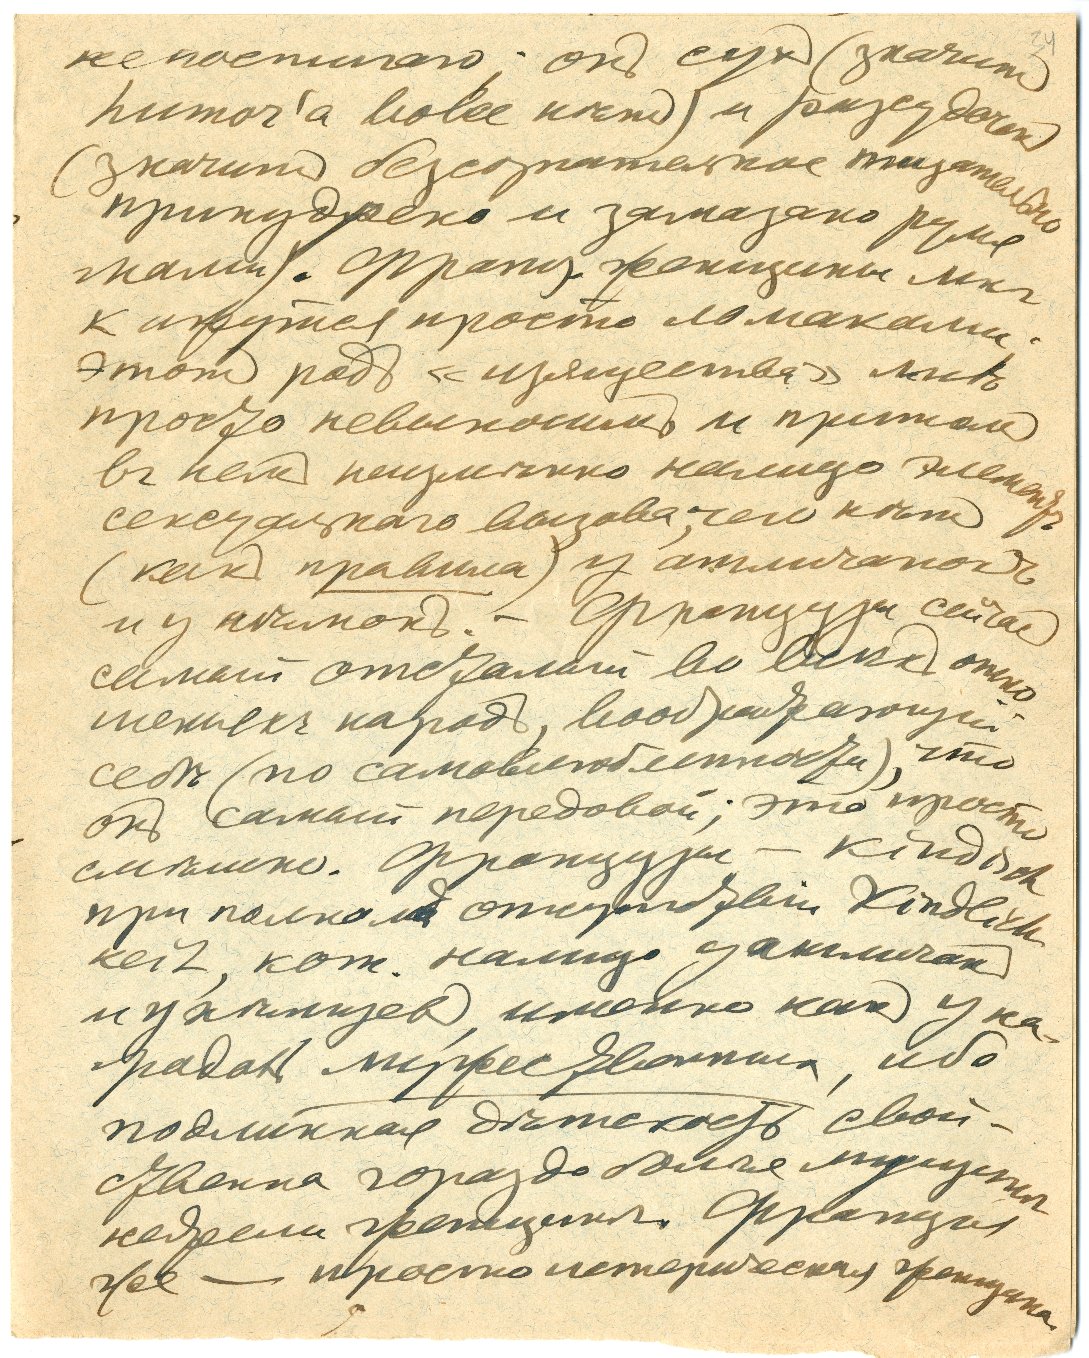 24
не постигаю; онъ сухъ (значитъ
humor'a вовсе нѣтъ) и разсудоченъ
(значитъ безсознательное тщательно
припудрено и замазано румя
нами). Франц. женщины мнѣ
кажутся просто ломаками;
этотъ родъ «изящества» мнѣ
просто невыносимъ и притомъ
въ немъ неизмѣнно налицо элементъ
сексуальнаго вызова, чего нѣтъ
(какъ правила) у англичанокъ
и у нѣмокъ. — Французы сейчас
самый отсталый во всѣхъ отно
шенiяхъ народъ, воображающiй
себѣ (по самовлюбленности), что
онъ самый передовой; это просто
смѣшно. Французы — kindisch
при полномъ отсутствiи Kindlich
keit, кот. налицо у англичанъ
и у нѣмцевъ, именно какъ у на-
родовъ мужественныхъ, ибо
подлинная дѣтскость свой-
ственна гораздо болѣе мущинѣ
нежели женщинѣ. Францiя
же — просто истерическая женщина.